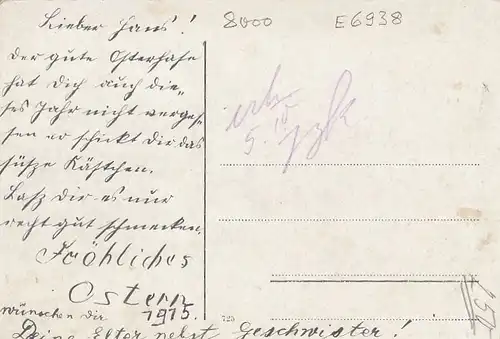 Lieber Hans!
Der gute Osterhase
hat Dich auch die=
ses Jahr nicht verges=
sen er schickt Dir das
süsze Kästchen.
Lasz Dir es nur
recht gut schmecken.
Fröhliches
Ostern
1915.
wünschen dir
Deine Elter nebst Geschwister!
8000
E6938
5.
725
150